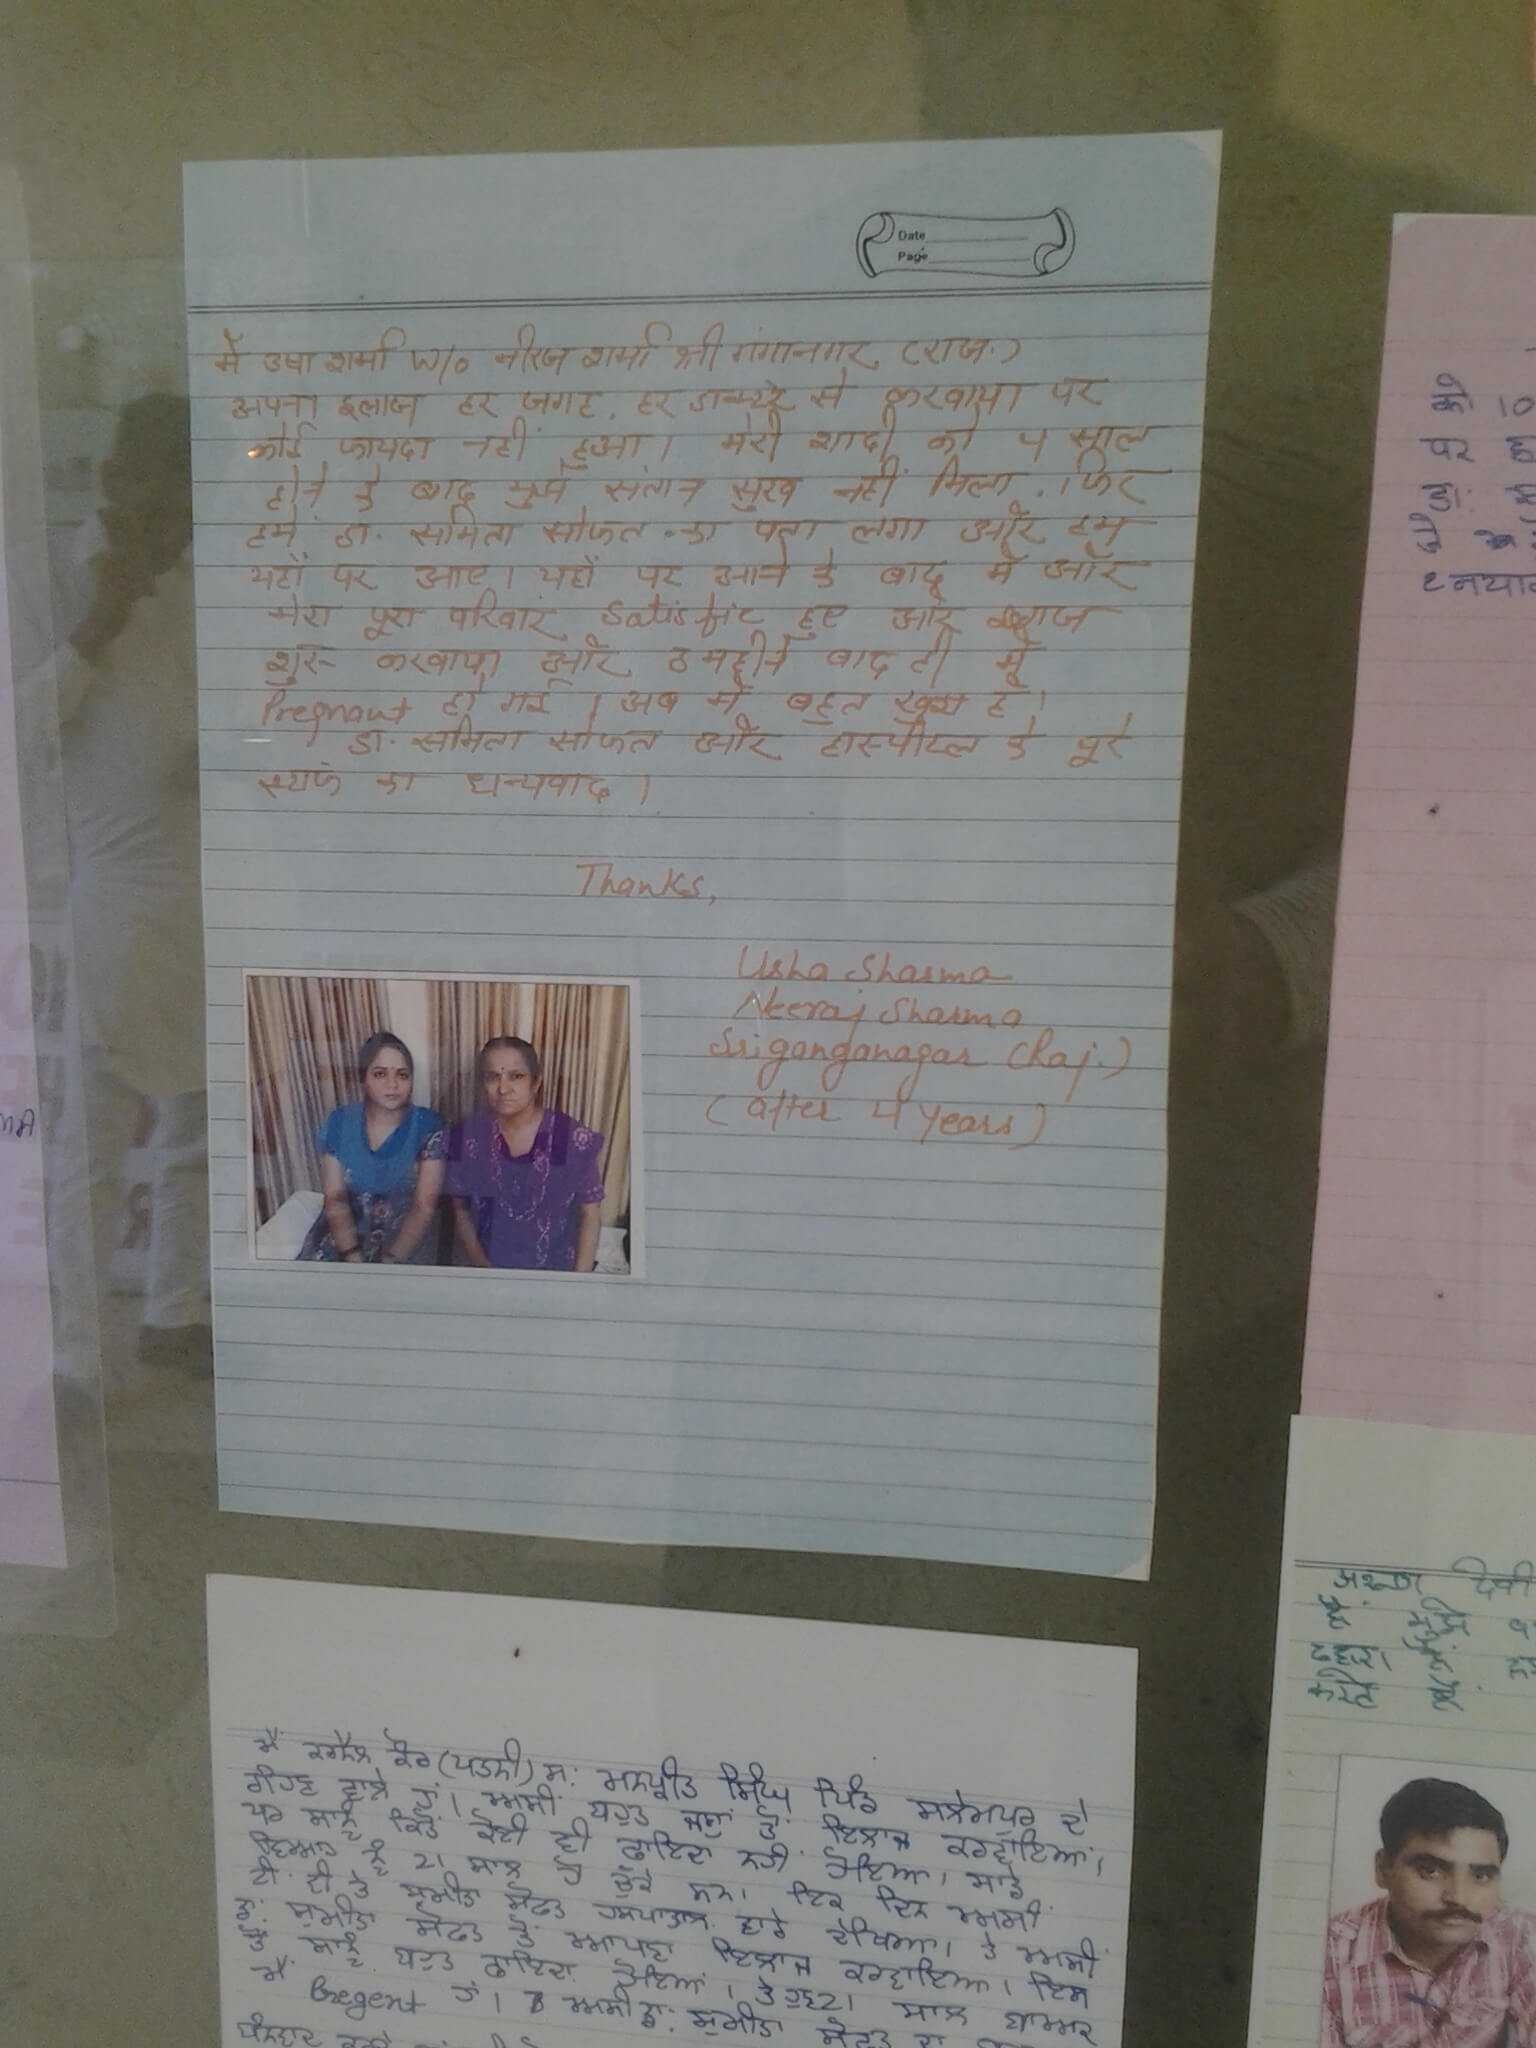 Date
Page
मैं उषा शर्मा W/o नीरज शर्मा श्री गंगानगर (राज.)
अपना इलाज हर जगह, हर डाक्टर से करवाया पर
कोई फायदा नहीं हुआ। मेरी शादी को 4 साल
होने के बाद मुझे संतान सुख नहीं मिला। फिर
हमें डा. समिता सोफत का पता लगा और हम
यहाँ पर आए। यहाँ पर आने के बाद मैं और
मेरा पूरा परिवार Satisfic हुए और इलाज
शुरू करवाया और महीने बाद ही मैं
Pregnant हो गई। अब मैं बहुत खुश हूँ।
डा. समिता सोफत और हास्पीटल के पूरे
स्टाफ का धन्यवाद।
Thanks,
Usha Sharma
Neeraj Sharma
Sriganganagar (Raj.)
(after 4 years)
को 10
पर
डा.
ਮੈਂ ਕੌਰ (ਪਤਨੀ) ਸ: ਮਨਪ੍ਰੀਤ ਸਿੰਘ ਪਿੰਡ ਸਲੇਮਪੁਰ ਦੇ
ਵਾਲੇ ਹਾਂ। ਅਸੀਂ ਬਹੁਤ ਤੋਂ ਇਲਾਜ ਕਰਵਾਇਆ।
ਪਰ ਸਾਨੂੰ ਕਿਤੇ ਕੋਈ ਵੀ ਫਾਇਦਾ ਨਹੀਂ ਹੋਇਆ। ਸਾਡੇ
ਵਿਆਹ ਨੂੰ 21 ਸਾਲ ਹੋ ਚੁੱਕੇ ਸਨ। ਇਕ ਦਿਨ ਅਸੀਂ
ਟੀ. ਵੀ ਤੇ ਸੁਮੀਤਾ ਸੋਫਤ ਹਸਪਤਾਲ ਬਾਰੇ ਦੇਖਿਆ। ਤੇ ਅਸੀਂ
ਡਾ. ਸੁਮੀਤਾ ਸੋਫਤ ਤੋਂ ਆਪਣਾ ਇਲਾਜ ਕਰਵਾਇਆ। ਇਸ
ਤੋਂ ਸਾਨੂੰ ਬਹੁਤ ਫਾਇਦਾ ਹੋਇਆ। ਤੇ ਹੁਣ 21 ਸਾਲ ਬਾਅਦ
ਮੈਂ Pregent ਹਾਂ। ਅਸੀਂ ਡਾ: ਸੁਮੀਤਾ ਸੋਫਤ ਦਾ